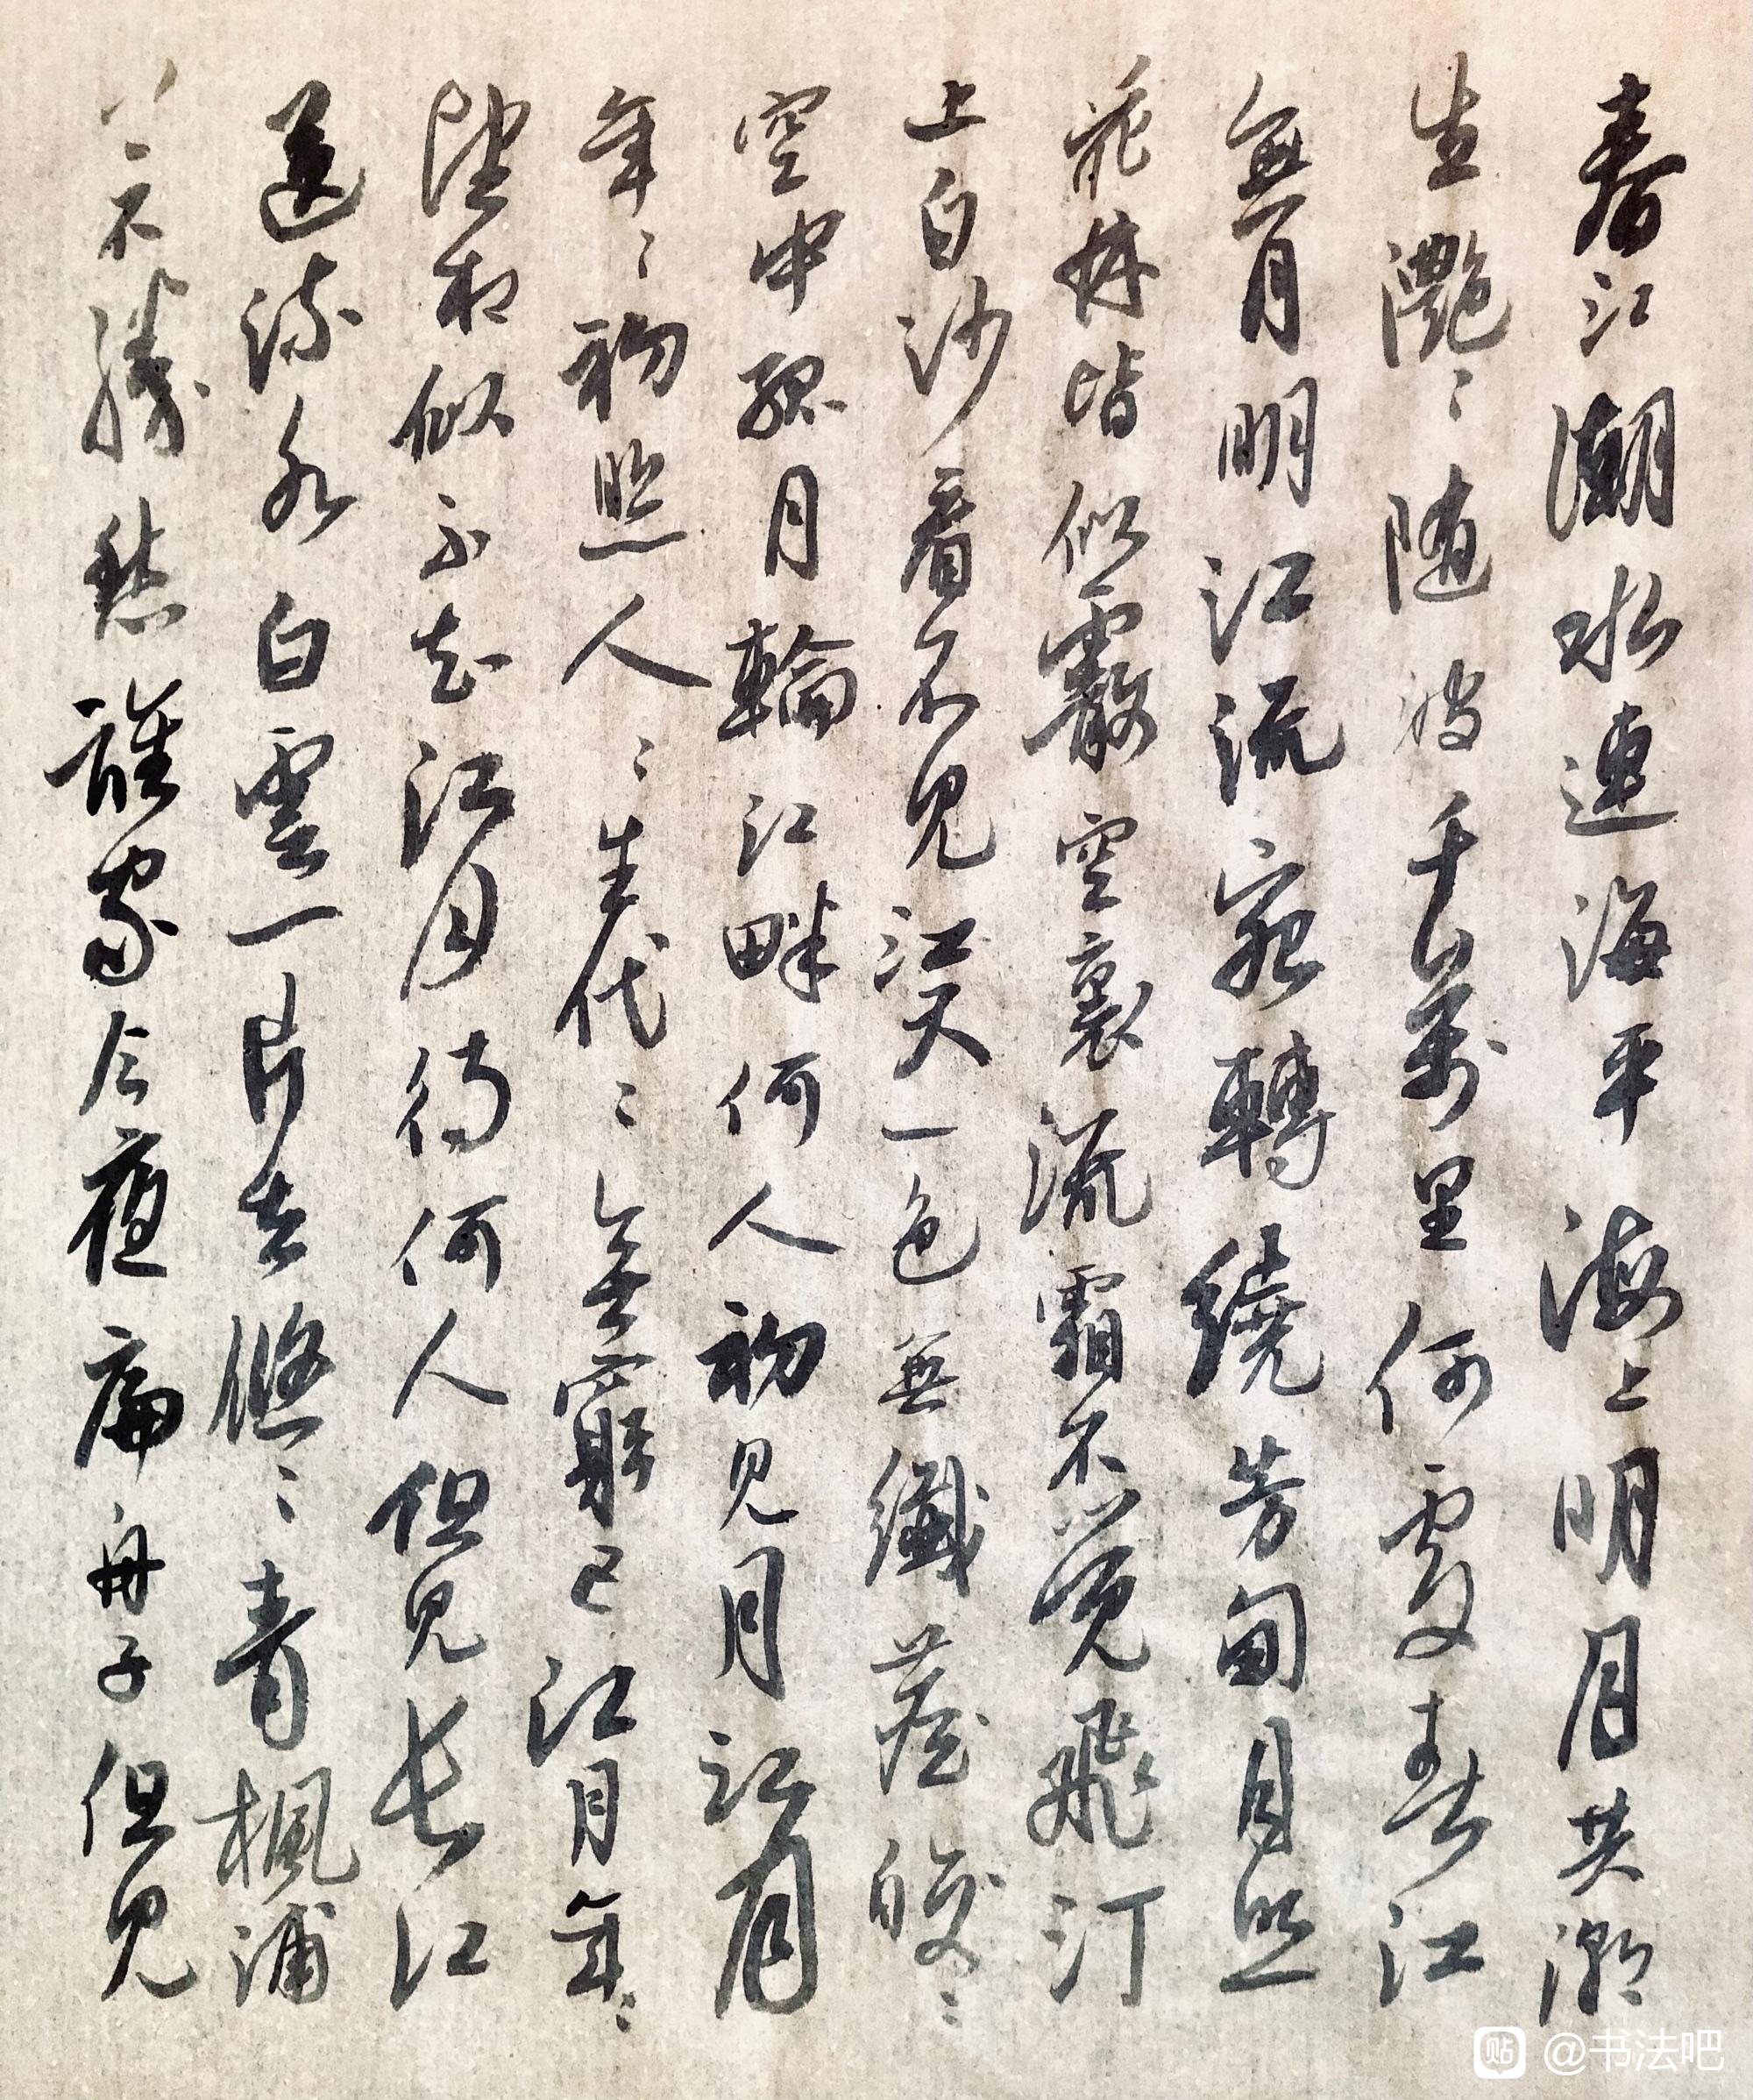 春江潮水連海平海上明月共潮
生灔〻随波千萬里何處春江
無月明江流宛轉繞芳甸月照
花林皆似霰空裏流霜不覺飛汀
上白沙看不見江天一色無纖塵皎〻
空中孤月輪江畔何人初見月江月
年〻初照人〻生代〻無窮已江月年〻
望相似不知江月待何人但見長江
送流水白雲一片去悠〻青楓浦
不勝愁誰家今夜扁舟子但見
贴 @书法吧